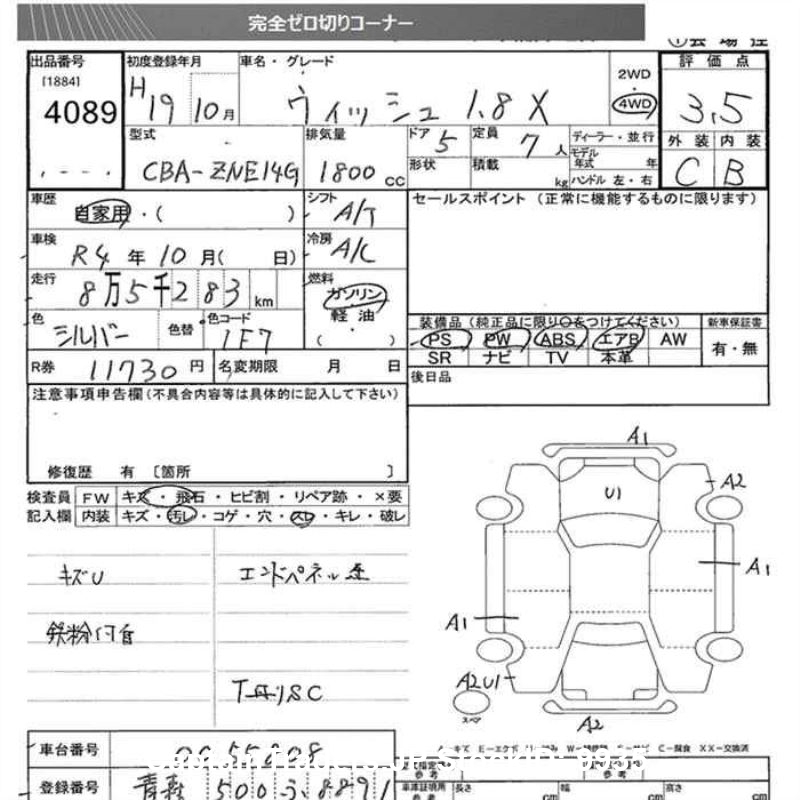 完全ゼロ切りコーナー
出品番号 初度登録年月 車名・グレード 2WD 評価点
[1884]
4089 H19 10月 ウィッシュ 1.8X 4WD 3.5
型式 排気量 ドア 5 定員 7人 ディーラー・並行 外装 内装
CBA-ZNE14G 1800cc 形状 積載 kg モデル年式 年 C B
ハンドル 左・右
車歴 自家用・( ) シフト A/T セールスポイント(正常に機能するものに限ります)
車検 R4年10月( 日) 冷房 A/C
走行 8万5千283km 燃料 ガソリン
軽油
( )
色 シルバー 色替 色コード 1F7
装備品(純正品に限り○をつけてください) 新車保証書
PS PW ABS エアB AW 有・無
SR ナビ TV 本革
R券 11730円 名変期限 月 日 後日品
注意事項申告欄(不具合内容等は具体的に記入して下さい)
修復歴 有 〔箇所 〕
検査員 FW キズ・飛石・ヒビ割・リペア跡・×要
記入欄 内装 キズ・汚レ・コゲ・穴・スレ・キレ・破レ
キズU
鉄粉付着
A1
U1
A2
A1
A1
A2U1
スペア
A2
C-腐食 XX-交換済
車台番号
登録番号 青森 500
参考 車庫証明用参考 長さ cm 幅 cm 高さ cm